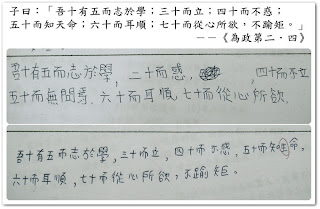 子曰：「吾十有五而志於學；三十而立；四十而不惑；
五十而知天命；六十而耳順；七十而從心所欲，不踰矩。」
——《為政第二‧四》
吾十有五而志於學，二十而惑，四十而不立
五十而無問焉，六十而耳順，七十而從心所欲，
吾十有五而志於學，三十而立，四十而不惑，五十而知命，
六十而耳順，七十而從心所欲，不踰矩。